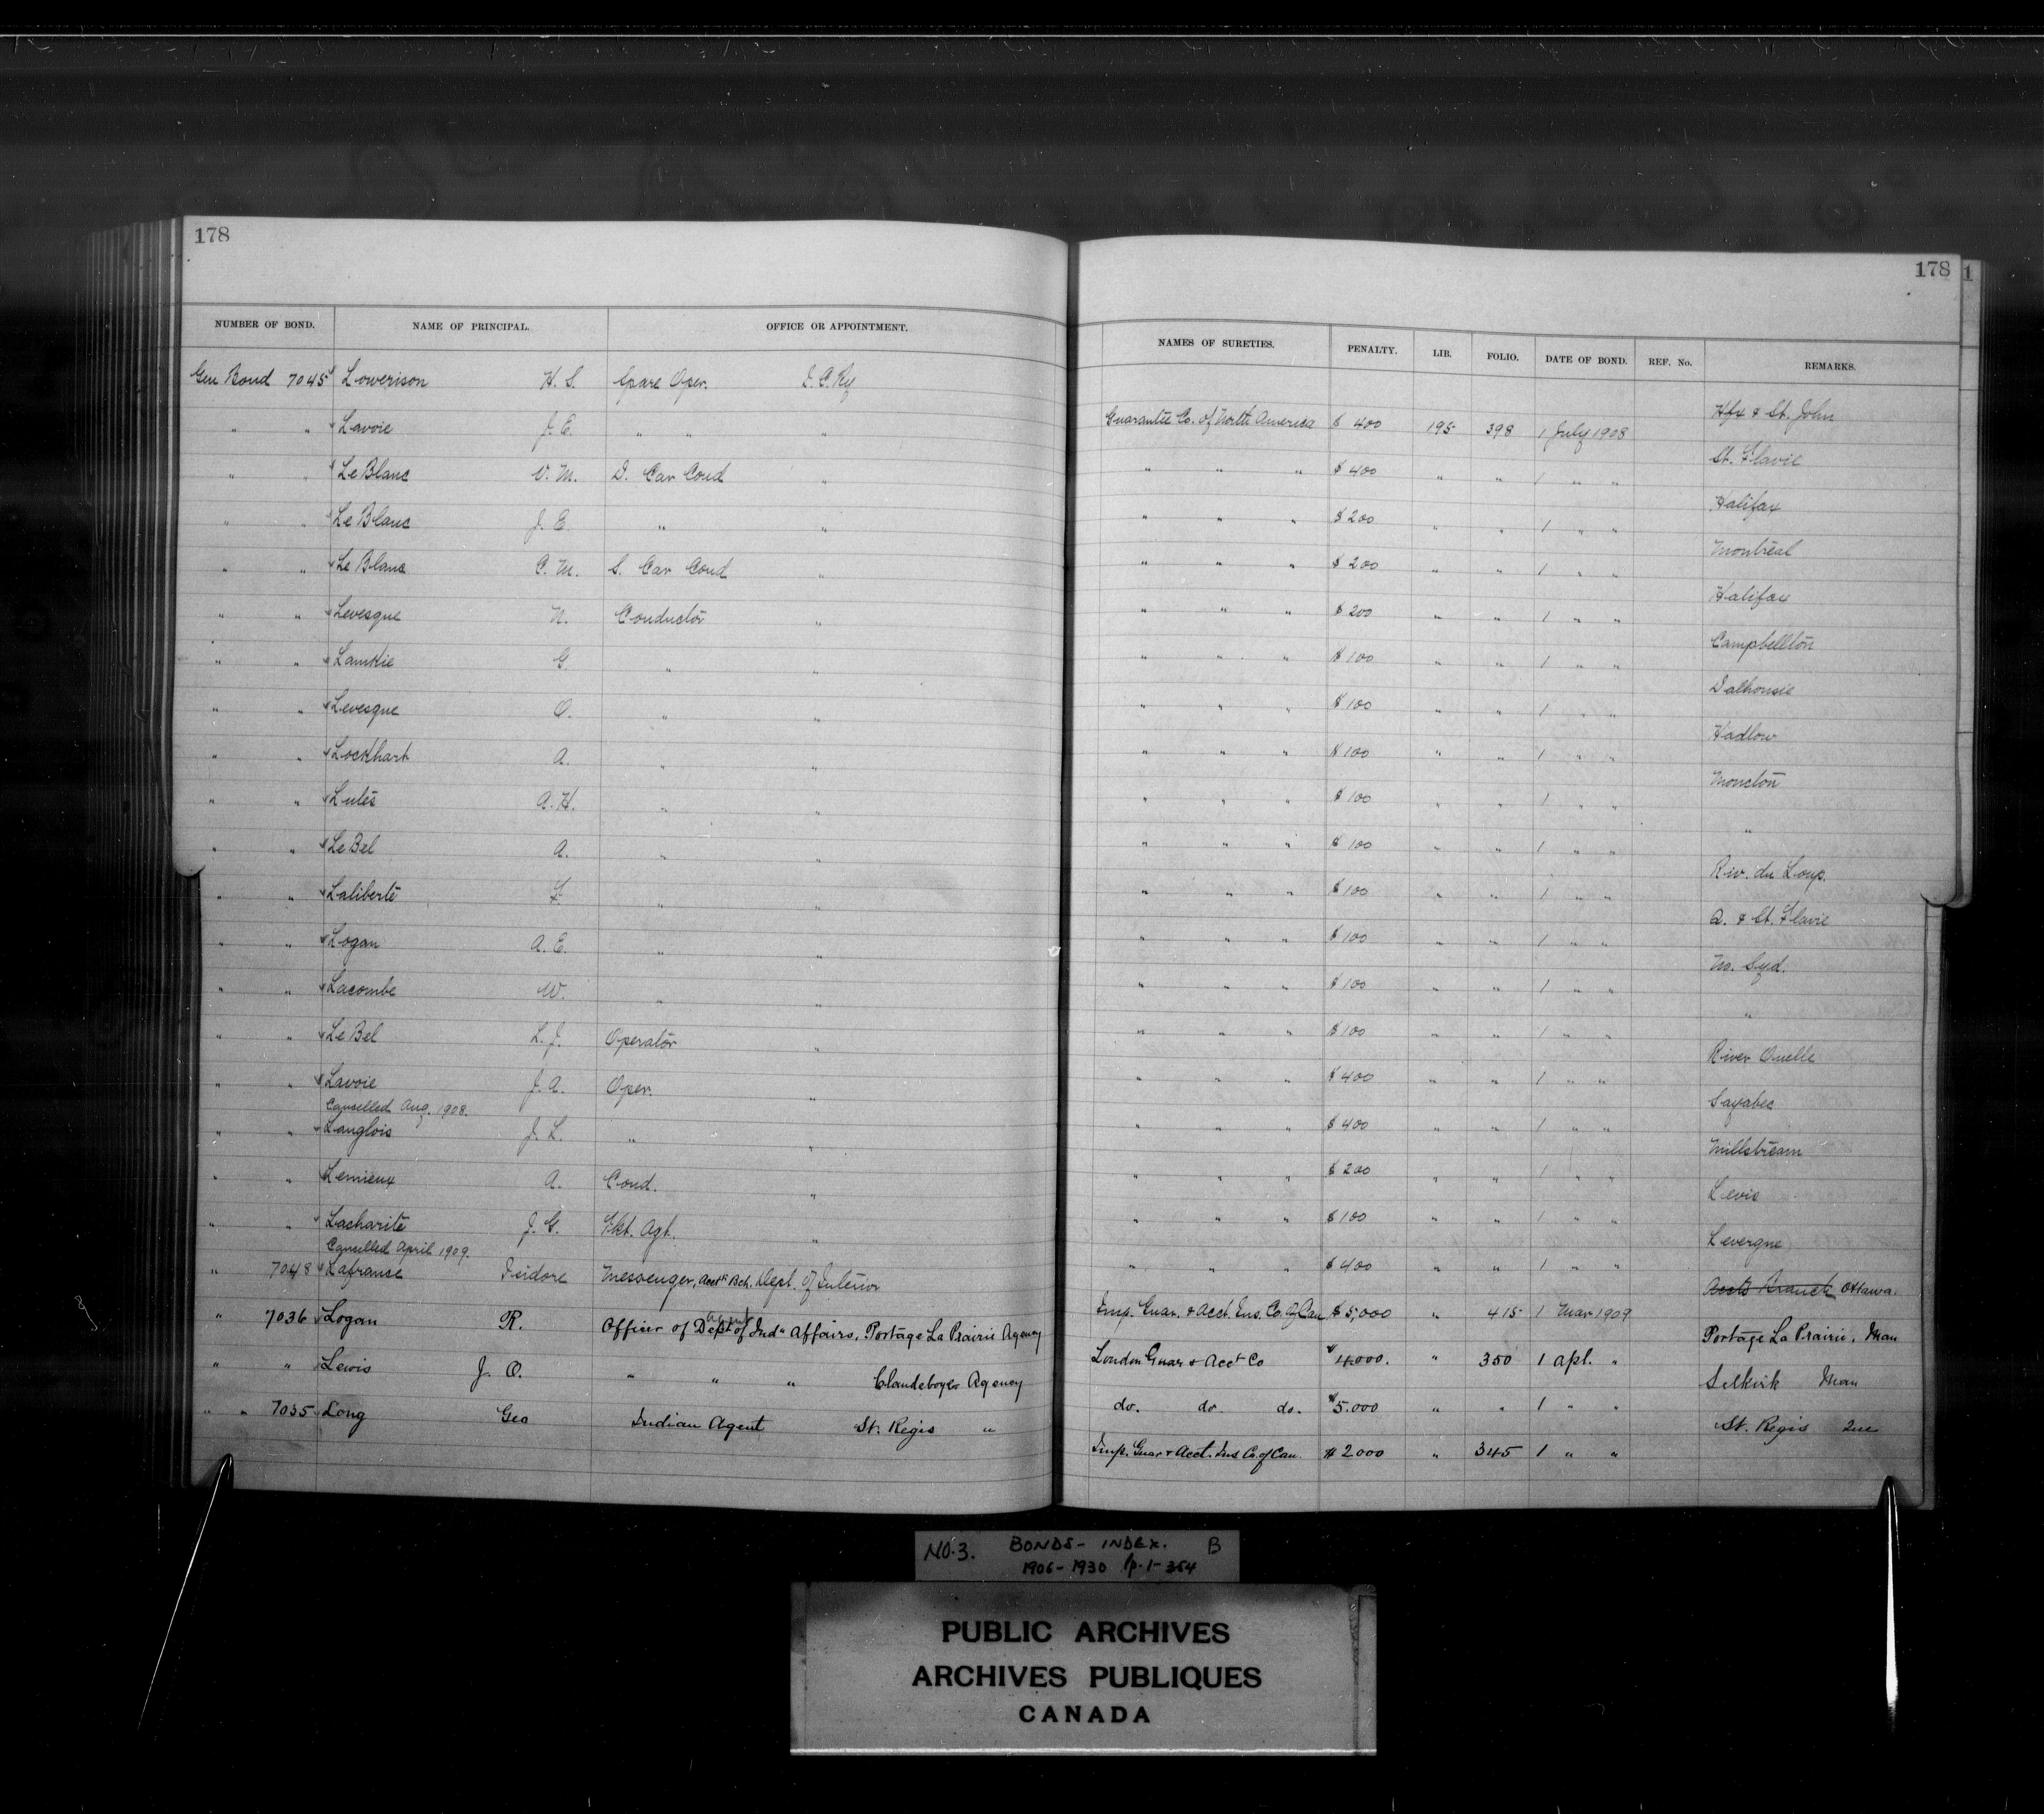 178
178
1
NUMBER OF BOND. NAME OF PRINCIPAL. OFFICE OR APPOINTMENT. NAMES OF SURETIES. PENALTY. LIB. FOLIO. DATE OF BOND. REF. No. REMARKS.
Gen Bond 7045 Lowerison H. S. Spare Oper. I. C. Ry Guarantee Co. of North America $ 400 195 398 1 July 1908 Hfx & St. John
" " Lavoie J. E. " " " " " " $ 400 " " 1 " " St. Flavie
" " Le Blanc V. M. D. Car Cond " " " " $ 200 " " 1 " " Halifax
" " Le Blanc J. E. " " " " " $ 200 " " 1 " " Montreal
" " Le Blanc C. M. S. Car Cond " " " " $ 200 " " 1 " " Halifax
" " Levesque N. Conductor " " " " $ 100 " " 1 " " Campbellton
" " Lamkie G. " " " " " $ 100 " " 1 " " Dalhousie
" " Levesque O. " " " " " $ 100 " " 1 " " Hadlow
" " Lockhart A. " " " " " $ 100 " " 1 " " Moncton
" " Lutes A. H. " " " " " $ 100 " " 1 " " "
" " Le Bel A. " " " " " $ 100 " " 1 " " Riv. du Loup.
" " Laliberté F. " " " " " $ 100 " " 1 " " Q. & St. Flavie
" " Logan A. E. " " " " " $ 100 " " 1 " " No. Syd.
" " Lacombe W. " " " " " $ 100 " " 1 " " "
" " Le Bel L. J. Operator " " " " $ 400 " " 1 " " River Ouelle
" " Lavoie J. A. Oper. " " " " $ 400 " " 1 " " Sayabec
Cancelled Aug. 1908.
" " Langlois J. L. " " " " " $ 200 " " 1 " " Millstream
" " Lemieux A. Cond. " " " " $ 100 " " 1 " " Levis
" " Lacharité J. G. Tkt. Agt. " " " " $ 400 " " 1 " " Levergne
Cancelled April 1909.
" 7048 Lafranse Isidore Messenger, Acct's Bch. Dept. of Interior Imp. Guar. & Acct. Ins. Co. of Can $ 5,000 " 415 1 Mar 1909 Accts Branch Ottawa.
" 7036 Logan R. Officer of Dept of Indn Affairs, Agent Portage La Prairie Agency London Guar & Acct Co $ 4000. " 350 1 Apl. " Portage La Prairie, Man
" " Lewis J. O. " " " Clandeboye Agency do. do do. $ 5.000 " " 1 " " Selkirk Man
" " 7035 Long Geo Indian Agent St. Regis " Imp. Guar & Acct. Ins Co. of Can. $ 2000 " 345 1 " " St. Regis Que
NO. 3. BONDS - INDEX. B
1906 - 1930 p. 1 - 354
PUBLIC ARCHIVES
ARCHIVES PUBLIQUES
CANADA